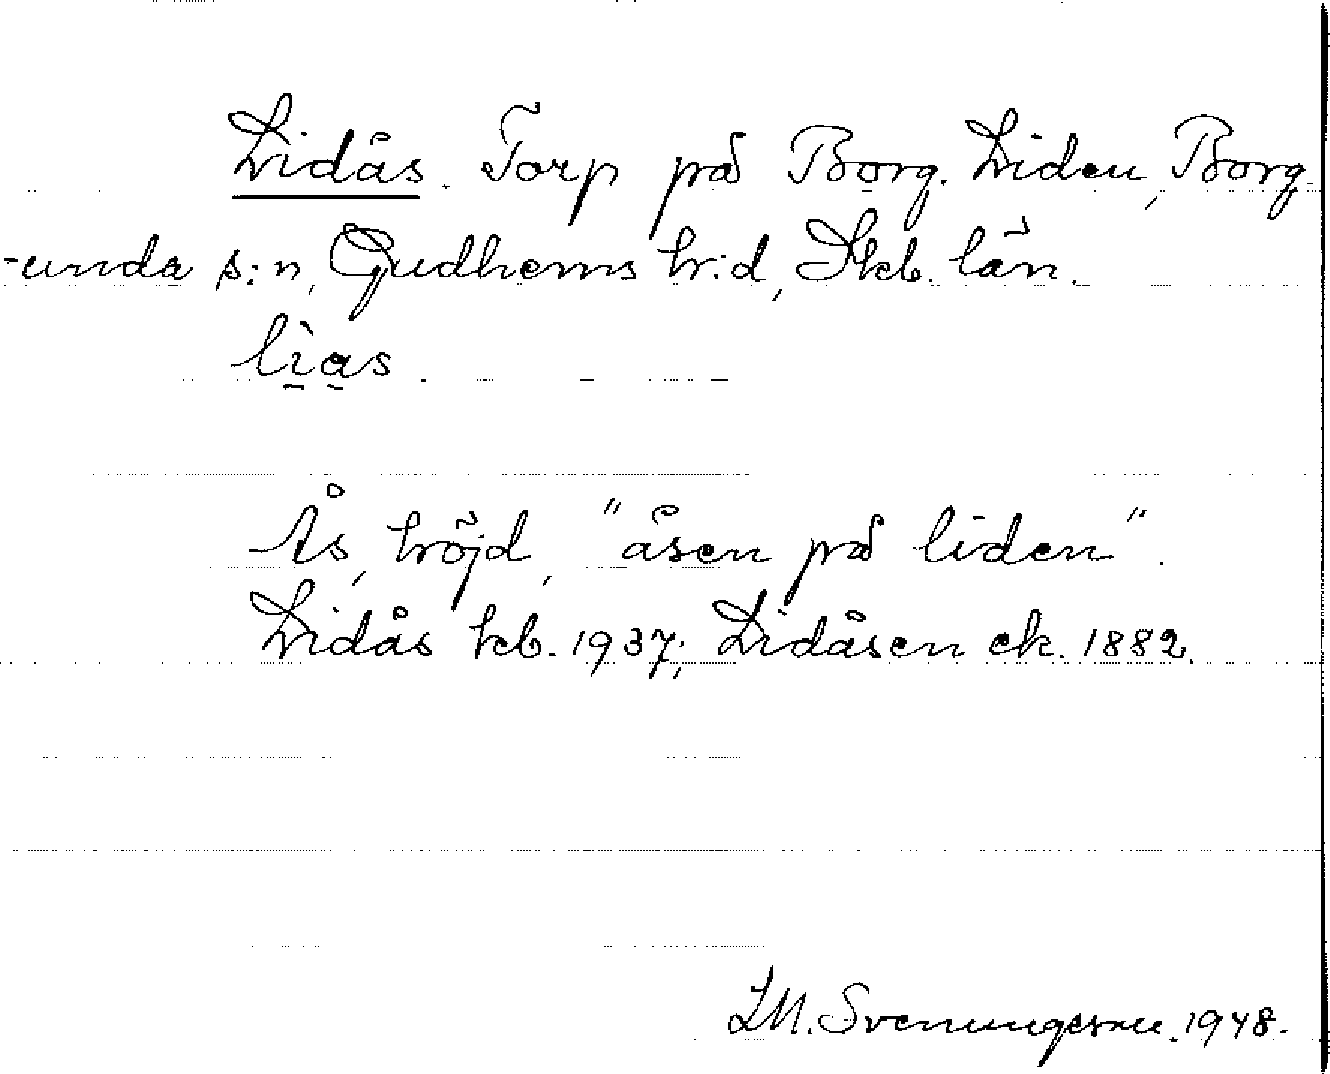 Lidås. Torp på Borg. Liden, Borg
-unda s:n, Gudhems hr:d, Skb. län.
lìas.
Ås, höjd, "åsen på liden".
Lidås kb. 1937; Lidåsen ek. 1882.
LM. Svenungsson. 1948.